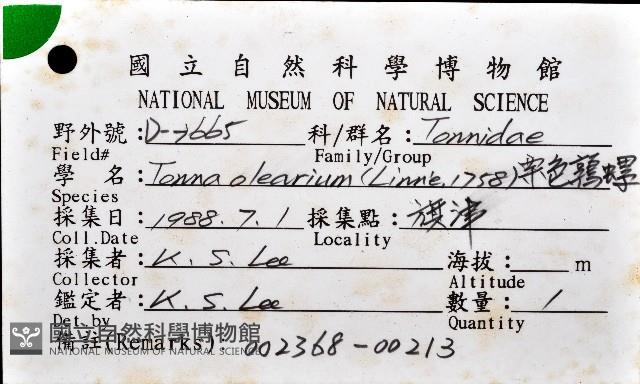 國立自然科學博物館
NATIONAL MUSEUM OF NATURAL SCIENCE
野外號: D-7665 科/群名: Tonnidae
Field# Family/Group
學 名: Tonna olearium (Linne, 1758) 栗色鶉螺
Species
採集日: 1988. 7. 1 採集點: 旗津
Coll.Date Locality
採集者: K. S. Lee 海拔: m
Collector Altitude
鑑定者: K. S. Lee 數量: 1
Det.by Quantity
備註(Remarks) 002368-00213
國立自然科學博物館
NATIONAL MUSEUM OF NATURAL SCIENCE